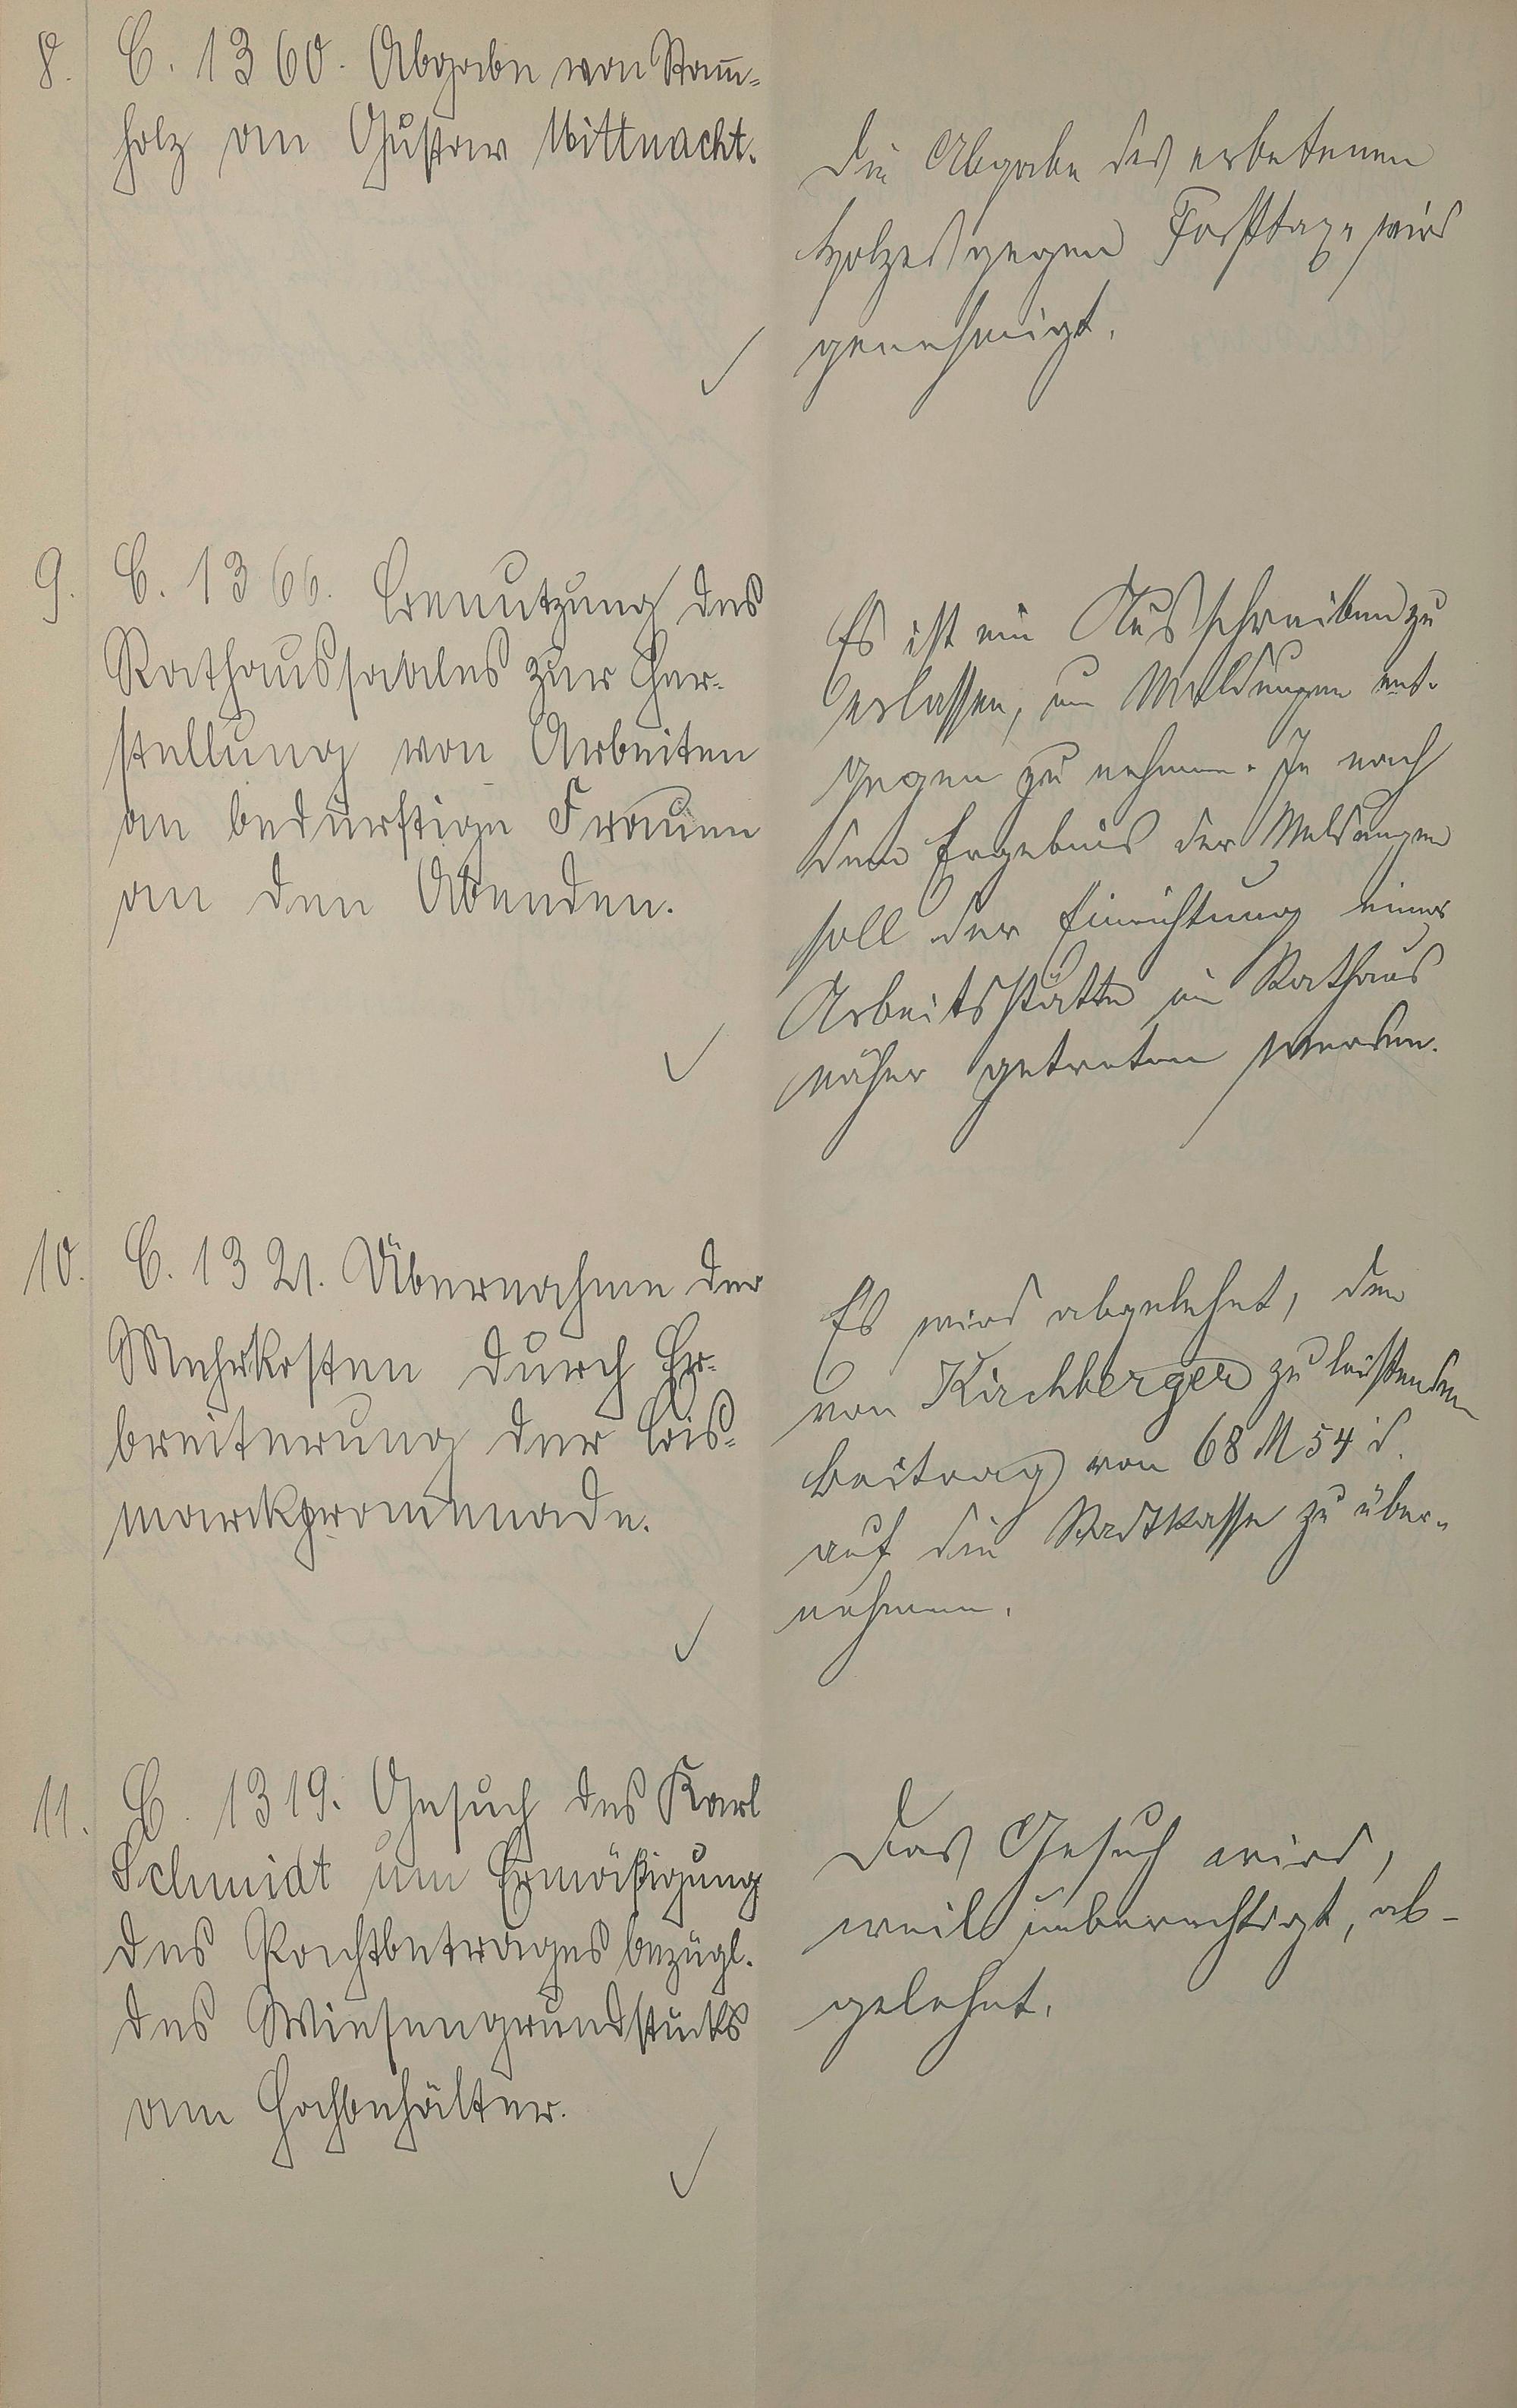 8. C. 1360. Abgabe von Stam̄-
holz an Gustav Mittnacht.
Die Abgabe des erbetenen
Holzes gegen Forsttaxe wird
genehmigt.
9. C. 1366. Benutzung des
Rathaussaales zur Her-
stellung von Arbeiten
an bedürftige Frauen
an den Abenden.
Es ist ein Ausschreiben zu
erlassen, um Meldungen ent-
gegen zu nehmen. Je nach
dem Ergebnis der Meldungen
soll der Einrichtung einer
Arbeitsstätte im Rathaus
näher getreten werden.
10. C. 1321. Übernahme der
Mehrkosten durch Er-
breiterung der Bis-
marckpromenade.
Es wird abgelehnt, den
von Kirchberger zu leistenden
Beitrag von 68 M 54 ₰.
auf die Stadtkasse zu über-
nehmen.
11. C. 1319. Gesuch des Karl
Schmidt um Ermäßigung
des Pachtbetrages bezügl.
des Wiesengrundstücks
am Hochbehälter.
Das Gesuch wird,
weil unberechtigt, ab-
gelehnt.